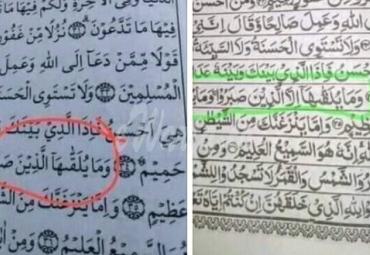 فِيهَا مَا تَدَّعُونَ ۝ نُزُلًا مِّنْ غَفُورٍ
قَوْلًا مِّمَّن دَعَا إِلَى اللهِ وَعَمِلَ
الْمُسْلِمِينَ ۝ وَلَا تَسْتَوِى الْحَسَنَةُ
هِيَ أَحْسَنُ فَإِذَا الَّذِي بَيْنَكَ
حَمِيمٌ ۝ وَمَا يُلَقَّاهَا إِلَّا الَّذِينَ
عَظِيمٍ ۝ وَإِمَّا يَنْزَغَنَّكَ مِنَ
هُوَ السَّمِيعُ الْعَلِيمُ ۝ وَمِنْ
فِيهَا مَا تَدَّعُونَ
اللهِ وَعَمِلَ صَالِحًا وَقَالَ إِنَّنِي
وَلَا تَسْتَوِى الْحَسَنَةُ وَلَا السَّيِّئَةُ
أَحْسَنُ فَإِذَا الَّذِي بَيْنَكَ وَبَيْنَهُ
وَمَا يُلَقَّاهَا إِلَّا الَّذِينَ صَبَرُوا وَمَا
وَإِمَّا يَنْزَغَنَّكَ مِنَ الشَّيْطَانِ
إِنَّهُ هُوَ السَّمِيعُ الْعَلِيمُ ۝ وَمِنْ
وَالشَّمْسُ وَالْقَمَرُ لَا تَسْجُدُوا لِلشَّمْسِ
لِلَّهِ الَّذِي خَلَقَهُنَّ إِنْ كُنْتُمْ إِيَّاهُ